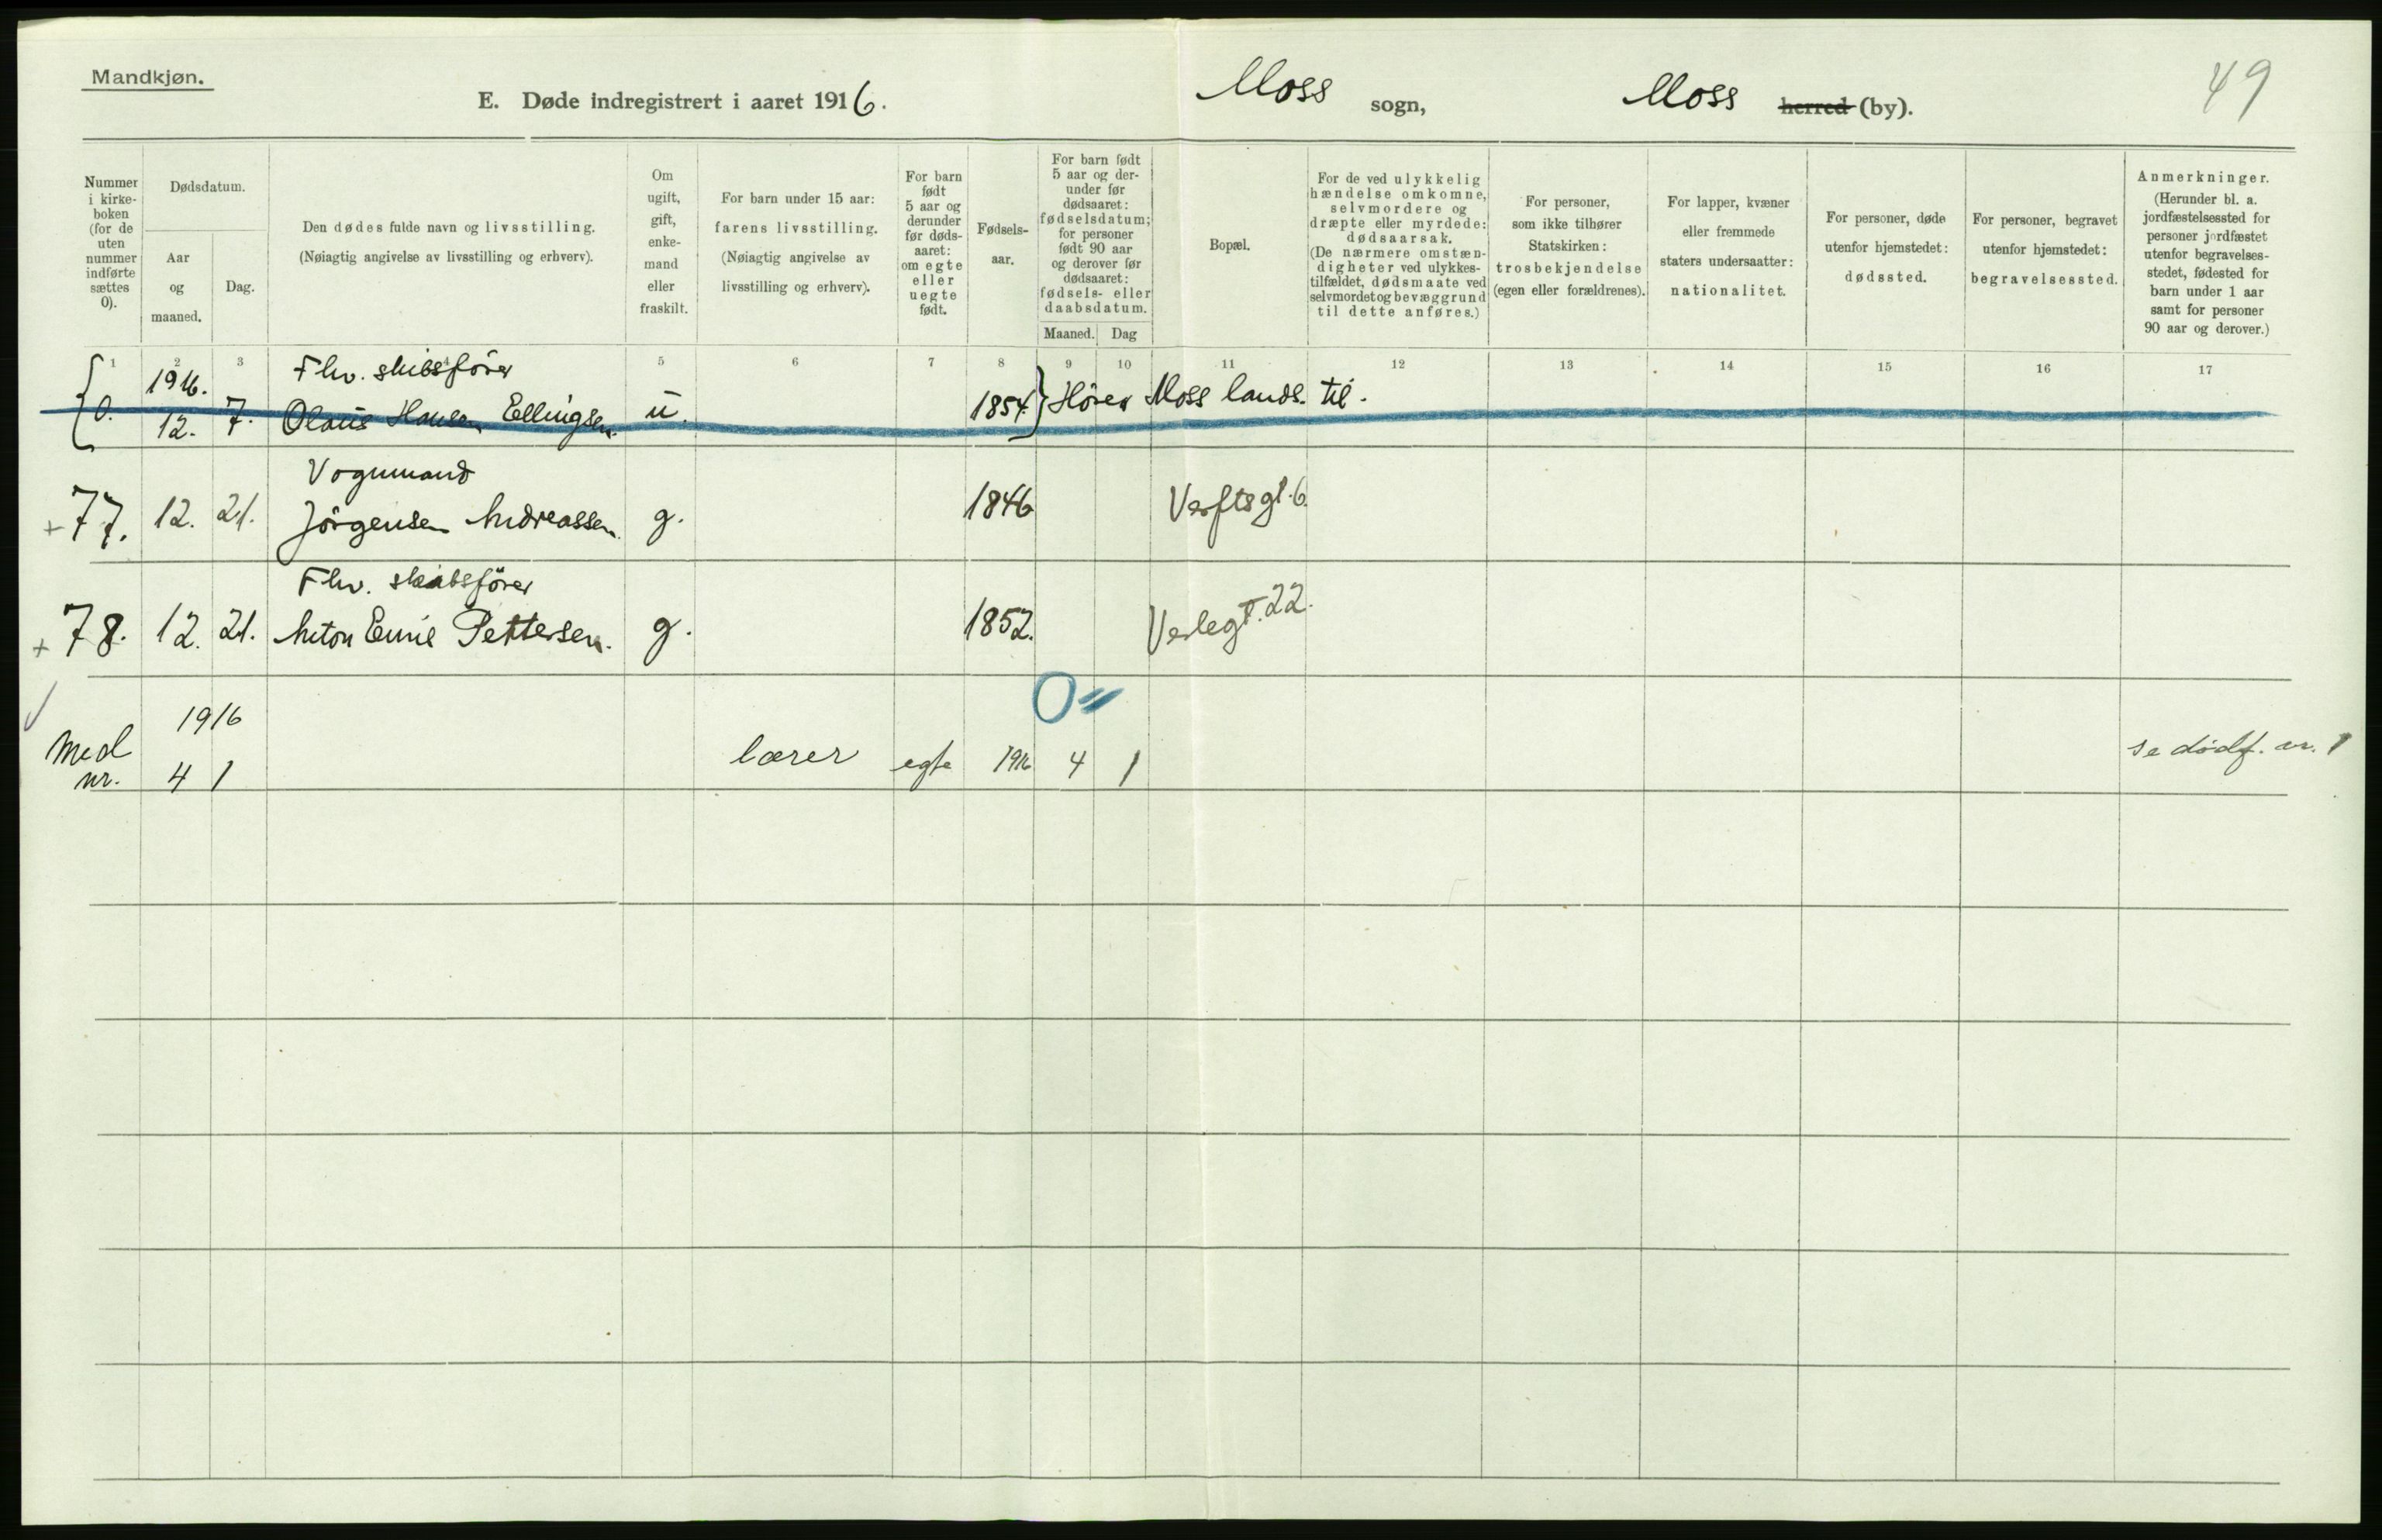 Mandkjøn.
E. Døde indregistrert i aaret 1916.
Moss sogn,
Moss herred (by).
49
Nummer
i kirke-
boken
(for de
uten
nummer
indførte
sættes
0).
Dødsdatum.
Aar
og
maaned.
Dag.
Den dødes fulde navn og livsstilling.
(Nøiagtig angivelse av livsstilling og erhverv).
Om
ugift,
gift,
enke-
mand
eller
fraskilt.
For barn under 15 aar:
farens livsstilling.
(Nøiagtig angivelse av
livsstilling og erhverv).
For barn
født
5 aar og
derunder
før døds-
aaret:
om egte
eller
uegte
født.
Fødsels-
aar.
For barn født
5 aar og der-
under før
dødsaaret:
fødselsdatum;
for personer
født 90 aar
og derover før
dødsaaret:
fødsels- eller
daabsdatum.
Maaned.
Dag
Bopæl.
For de ved ulykkelig
hændelse omkomne,
selvmordere og
dræpte eller myrdede:
dødsaarsak.
(De nærmere omstæn-
digheter ved ulykkes-
tilfældet, dødsmaate ved
selvmordet og bevæggrund
til dette anføres.)
For personer,
som ikke tilhører
Statskirken:
trosbekjendelse
(egen eller forældrenes).
For lapper, kvæner
eller fremmede
staters undersaatter:
nationalitet.
For personer, døde
utenfor hjemstedet:
dødssted.
For personer, begravet
utenfor hjemstedet:
begravelsessted.
Anmerkninger.
(Herunder bl. a.
jordfæstelsessted for
personer jordfæstet
utenfor begravelses-
stedet, fødested for
barn under 1 aar
samt for personer
90 aar og derover.)
1 2 3 4 5 6 7 8 9 10 11 12 13 14 15 16 17
1916. Fhv. skibsfører
0. 12. 7. Olaus Hansen Ellingsen. u. 1854. } Hører Moss lands. til.
Vognmand
+ 77. 12. 21. Jørgensen Andreassen. g. 1846 Verftsgt. 6.
Fhv. skibsfører
+ 78. 12. 21. Anton Emil Pettersen. g. 1852. Verlegt. 22.
0
1916
Med
nr. 4 1 lærer egte 1916 4 1 se dødf. nr. 1